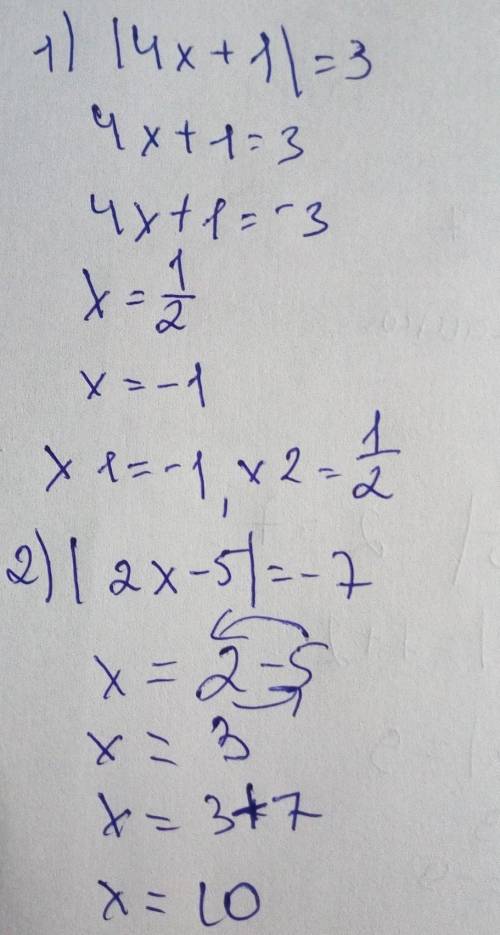 1) |4x+1|=3
4x+1=3
4x+1=-3
x=1/2
x=-1
x1=-1, x2=1/2
2) |2x-5|=-7
x=2-5
x=3
x=3+7
x=10